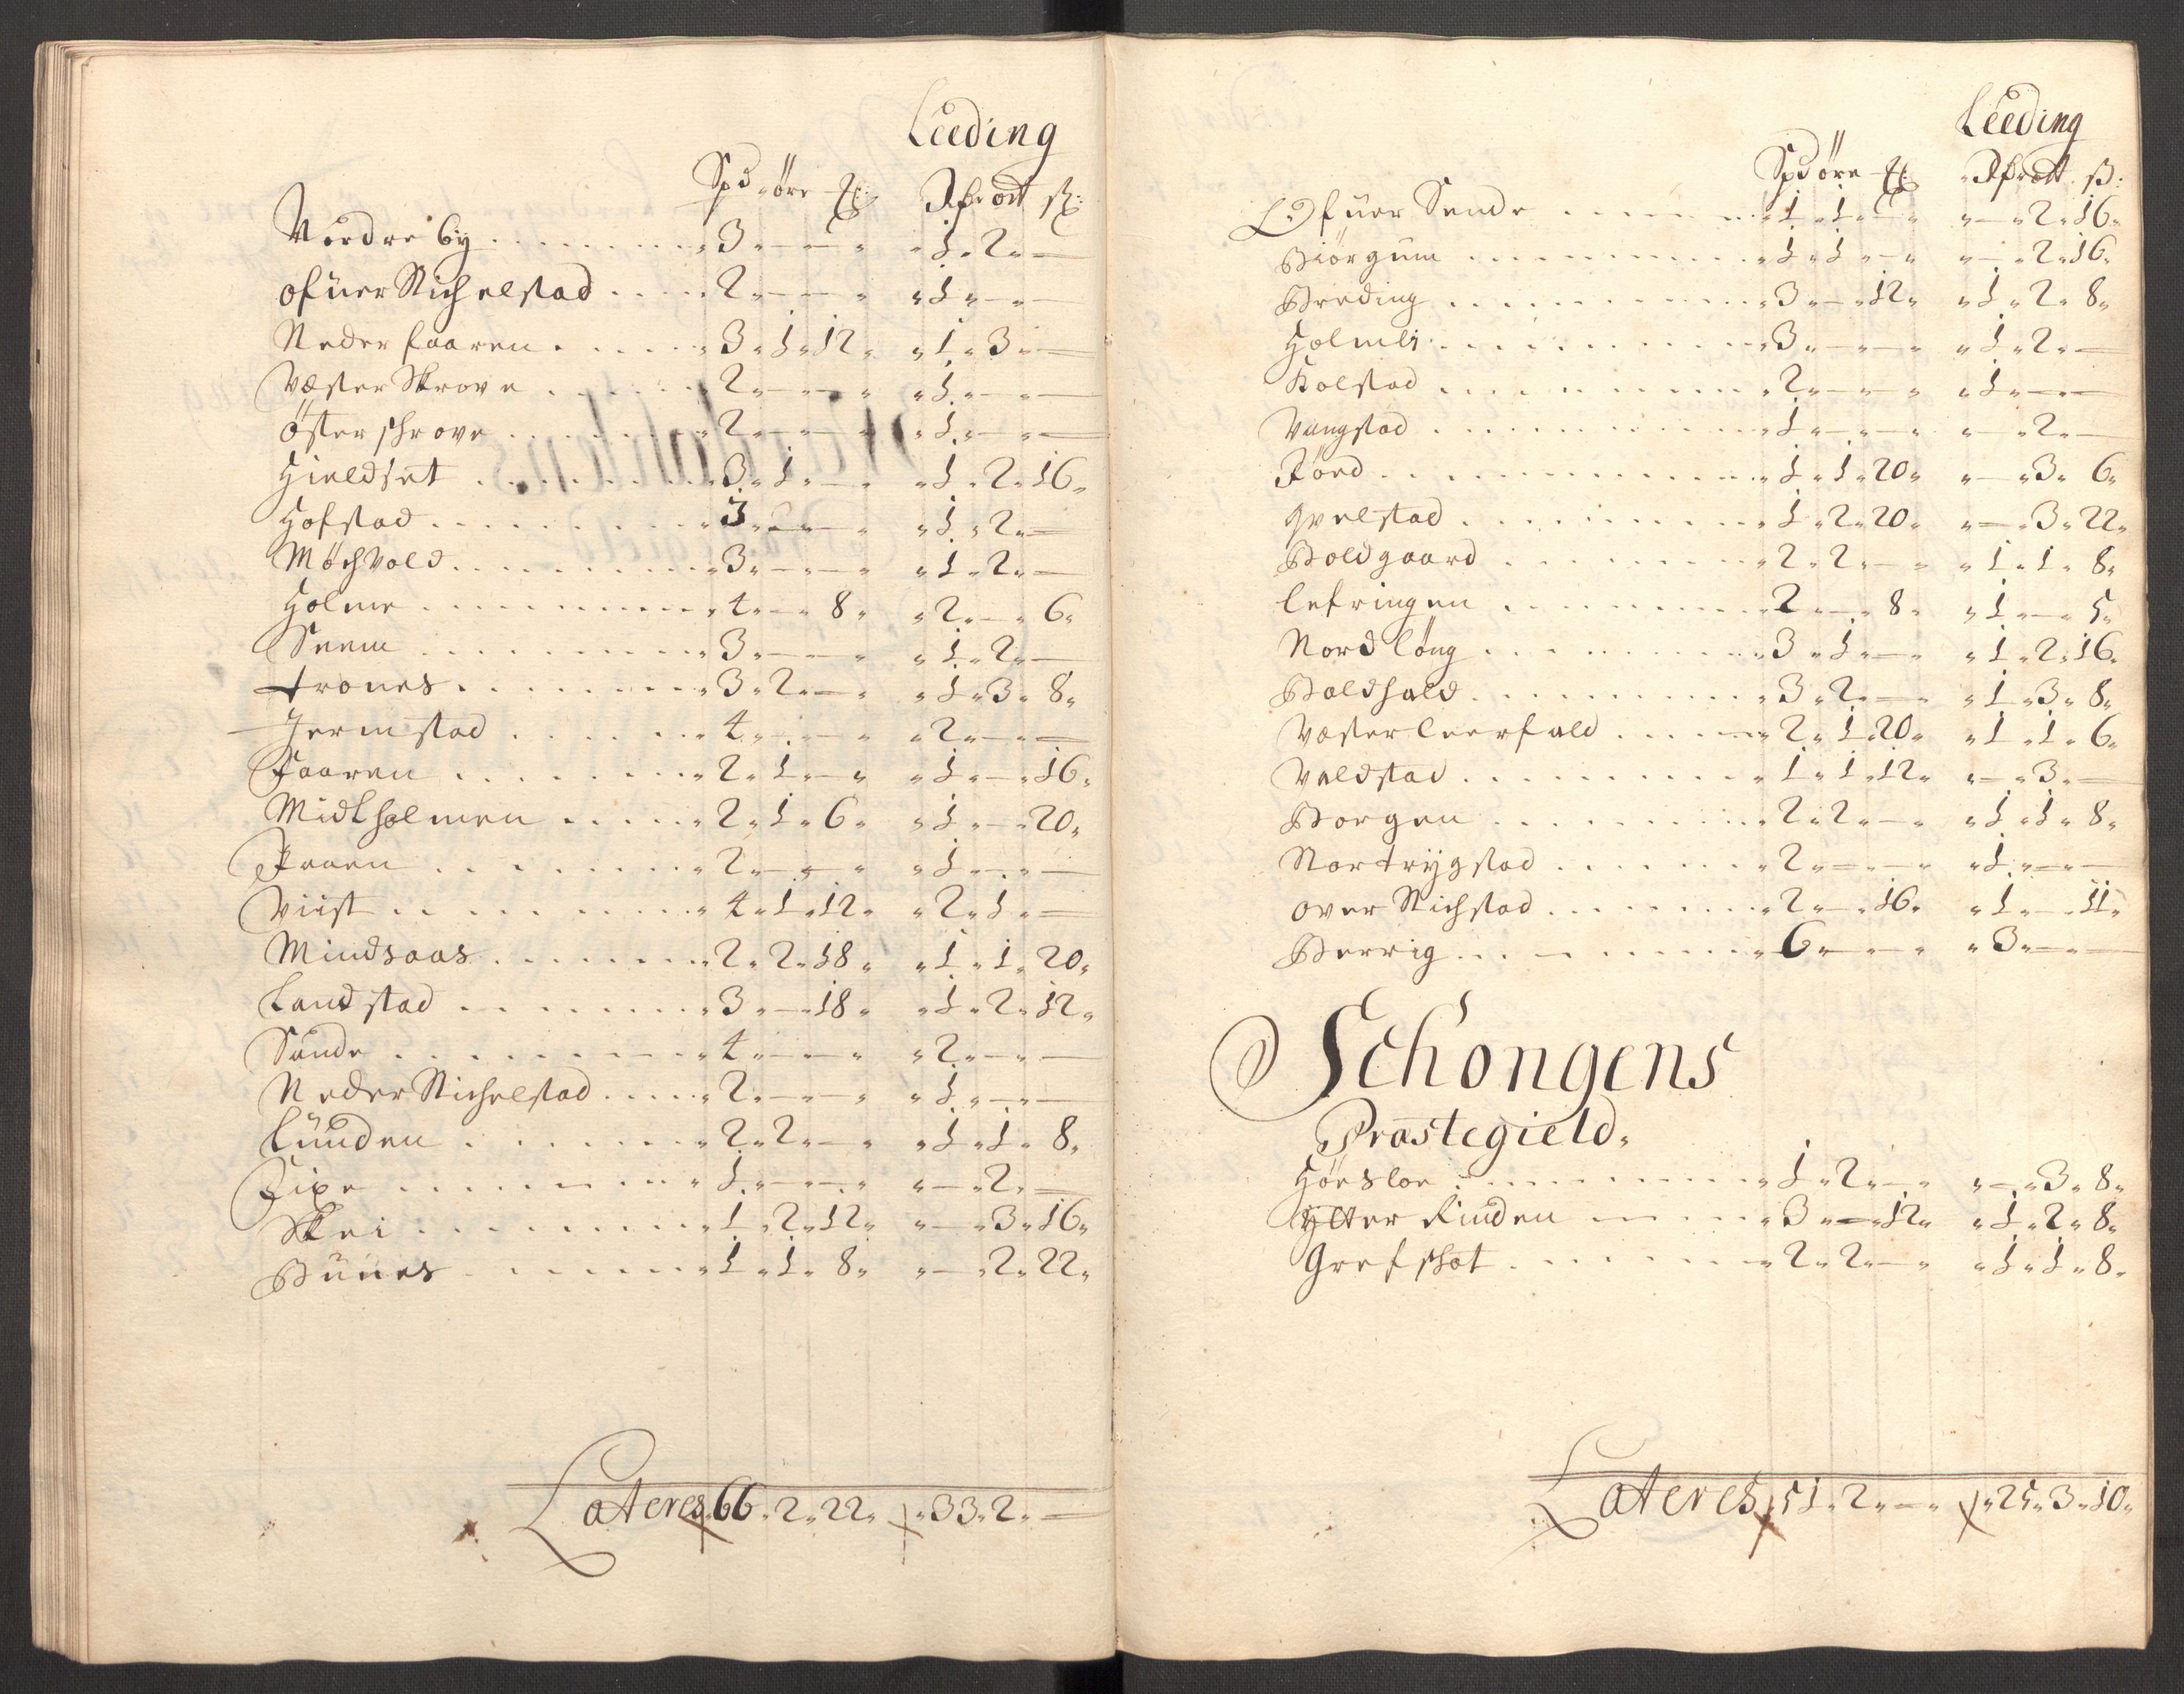 Leeding
Spd øre Rdr ort ß:
Nordre by 3 - - 1 2 -
ofuer Stichelstad 2 - - 1 - -
Neder faaren 3 1 12 1 3 -
Væster Skrove 2 - - 1 - -
Öster schrove 2 - - 1 - -
Hieldset 3 1 - 1 2 16
Hofstad 3 - - 1 2 -
Möchvold 3 - - 1 2 -
Holme 4 - 8 2 - 6
Seem 3 - - 1 2 -
trones 3 2 - 1 3 8
Jermstad 4 - - 2 - -
Faaren 2 1 - 1 - 16
Midtholmen 2 1 6 1 - 20
2 - - 1 - -
Viist 4 1 12 2 1 -
Mindsaas 2 2 18 1 1 20
Landstad 3 - 18 1 2 12
Sunde 4 - - 2 - -
Neder Stichelstad 2 - - 1 - -
Lünden 2 2 - 1 1 8
1 - - - 2 -
Skei 1 2 12 - 3 16
Bünes 1 1 8 - 2 22
Lateres 66 2 22 33 2 -
Leeding
Spd øre Rdr ort ß:
Ofuer Sende 1 1 - - 2 16
Biörgum 1 1 - - 2 16
Breding 3 - 12 1 2 8
Holmli 3 - - 1 2 -
Kolstad 2 - - 1 - -
Vangstad 1 - - - 2 -
Förd 1 1 20 - 3 6
Qvelstad 1 2 20 - 3 22
Boldgaard 2 2 - 1 1 8
lefringen 2 - 8 1 - 5
Nord löng 3 1 - 1 2 16
Boldhald 3 2 - 1 3 8
Væster leerfald 2 1 20 1 1 6
Voldstad 1 1 12 - 3 -
Borgen 2 2 - 1 1 8
Nortrygstad 2 - - 1 - -
over Stichstad 2 - 16 1 - 11
Berrig 6 - - 3 - -
Schongens
Præstegield.
Hörsloe 1 2 - - 3 8
Ytter Kinden 3 - 12 1 2 8
Grefshot 2 2 - 1 1 8
Lateres 51 2 - 25 3 10